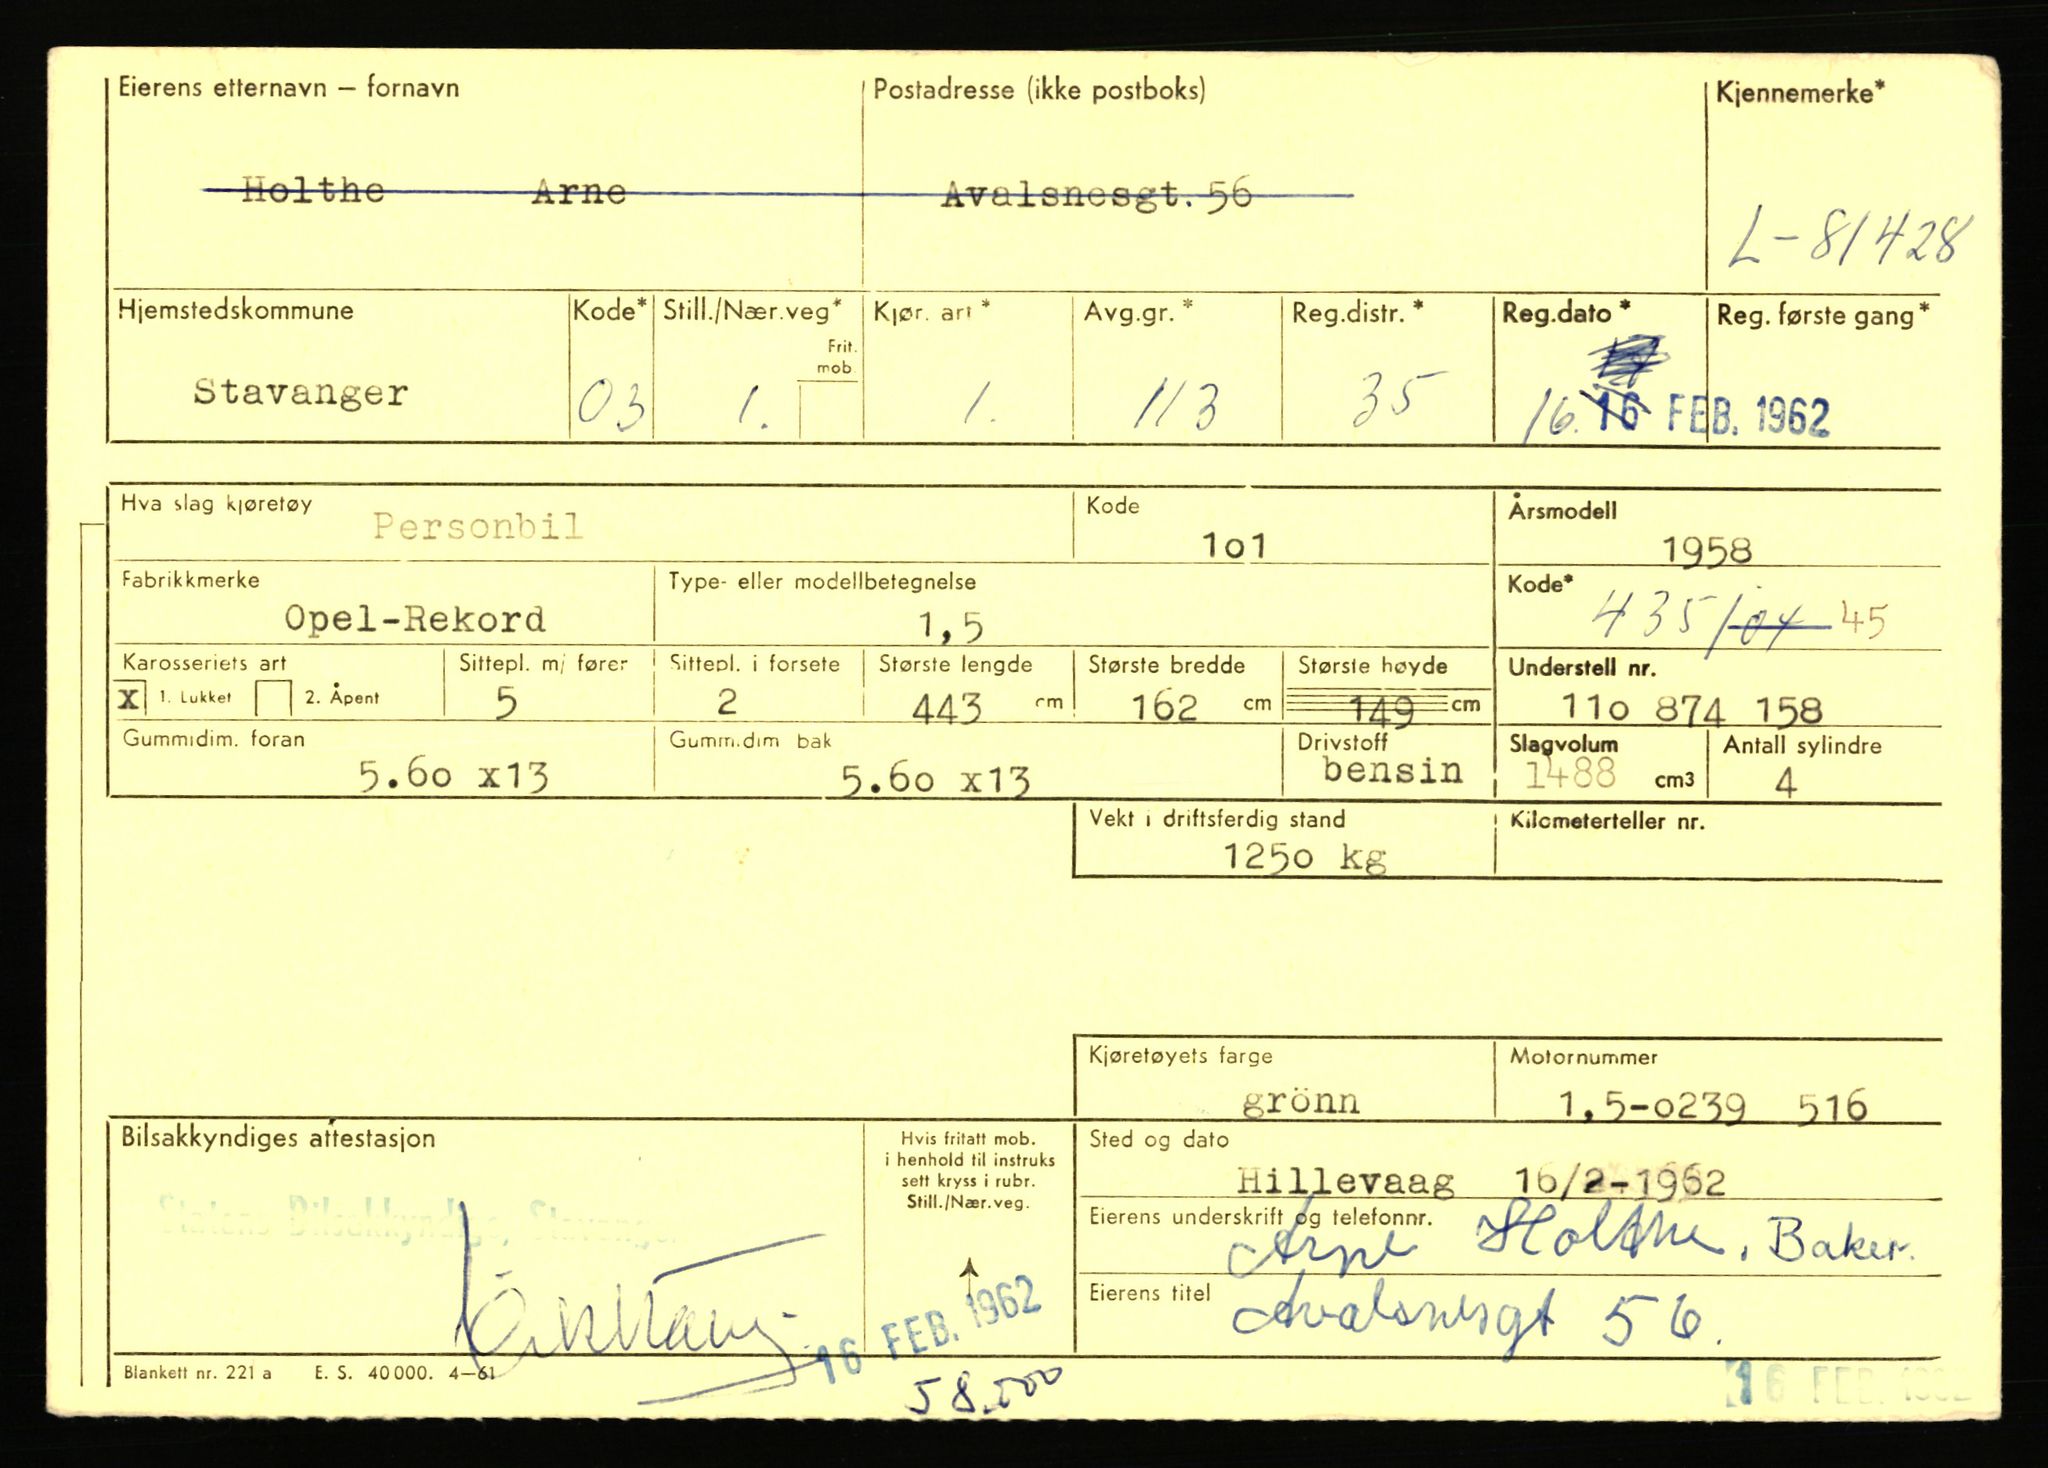 Eierens etternavn – fornavn Postadresse (ikke postboks) Kjennemerke*
Holthe Arne Avalsnesgt. 56
L-81428
Hjemstedskommune Kode* Still./Nær.veg* Kjør. art * Avg.gr. * Reg.distr. * Reg.dato * Reg. første gang*
Frit. mob.
Stavanger 03 1. 1. 113 35 16. 16 FEB. 1962
Hva slag kjøretøy Kode Årsmodell
Personbil 1o1 1958
Fabrikkmerke Type- eller modellbetegnelse Kode*
Opel-Rekord 1,5 435/04 45
Karosseriets art Sittepl. m/ fører Sittepl. i forsete Største lengde Største bredde Største høyde Understell nr.
X 1. Lukket 2. Åpent 5 2 443 cm 162 cm 149 cm 11o 874 158
Gummidim. foran Gummidim bak Drivstoff Slagvolum Antall sylindre
5.6o x13 5.6o x13 bensin 1488 cm3 4
Vekt i driftsferdig stand Kilometerteller nr.
125o kg
Kjøretøyets farge Motornummer
grönn 1,5-o239 516
Bilsakkyndiges attestasjon Hvis fritatt mob. Sted og dato
i henhold til instruks
sett kryss i rubr.
Still./Nær.veg.
Hillevaag 16/2-1962
Statens Bilsakkyndige, Stavanger
Eierens underskrift og telefonnr.
Arne Holthe, Baker.
Eierens titel Avalsnesgt 56.
16 FEB. 1962
Blankett nr. 221 a E. S. 40 000. 4–61
58.500
16 FEB. 1962